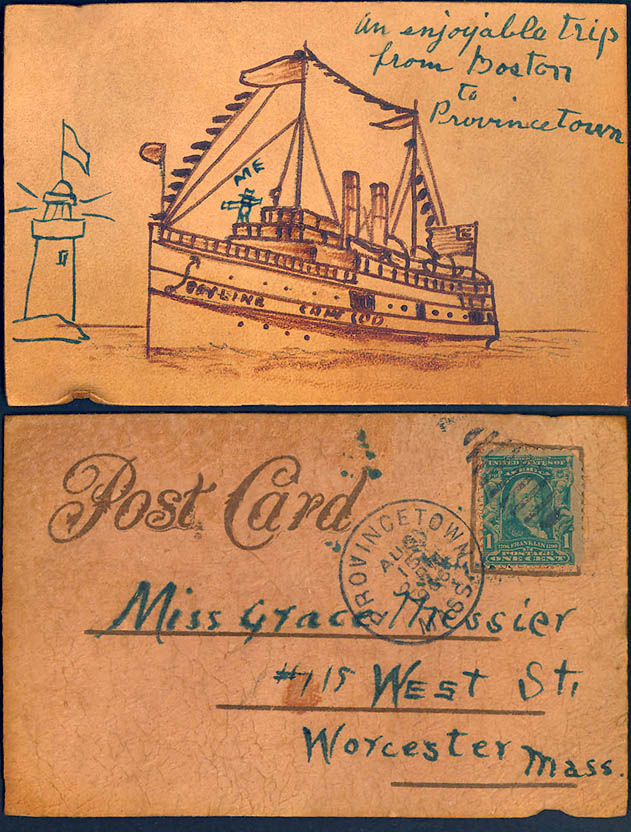 An enjoyable trip
from Boston
to
Provincetown
ME
BAYLINE CAPE COD
Post Card
PROVINCETOWN MASS
AUG
UNITED STATES OF
AMERICA
1706 FRANKLIN 1790
1 POSTAGE 1
ONE CENT
Miss Grace
#115 West St.
Worcester
Mass.